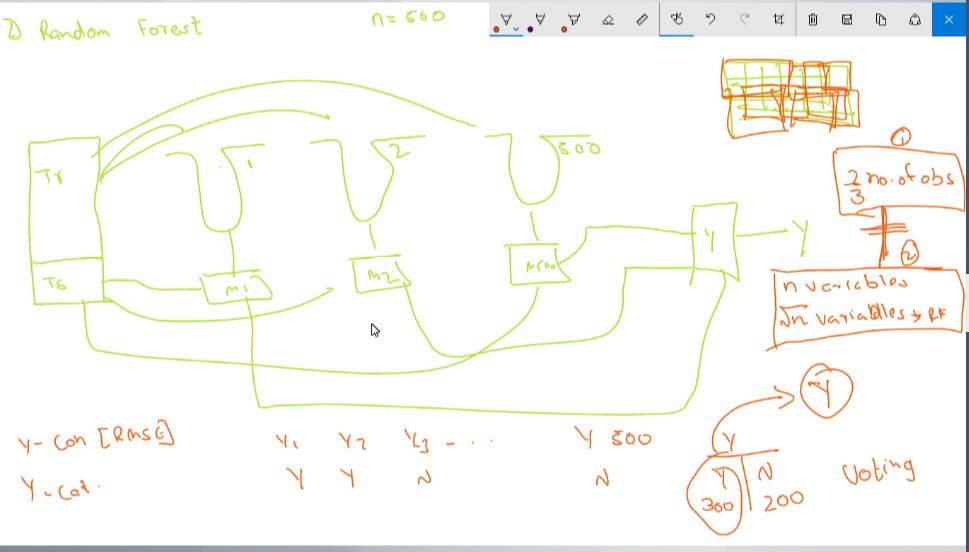 2) Random Forest
n = 500
1
2
500
Tr
Ts
M1
M2
M500
Y
Y
①
2/3 no. of obs
②
n variables
√n variables → RF
Y
Y - Con [RMSE]
Y1 Y2 Y3 - ... Y 500
Y - Cat.
Y Y N N
Y
Y | N
300 | 200
Voting